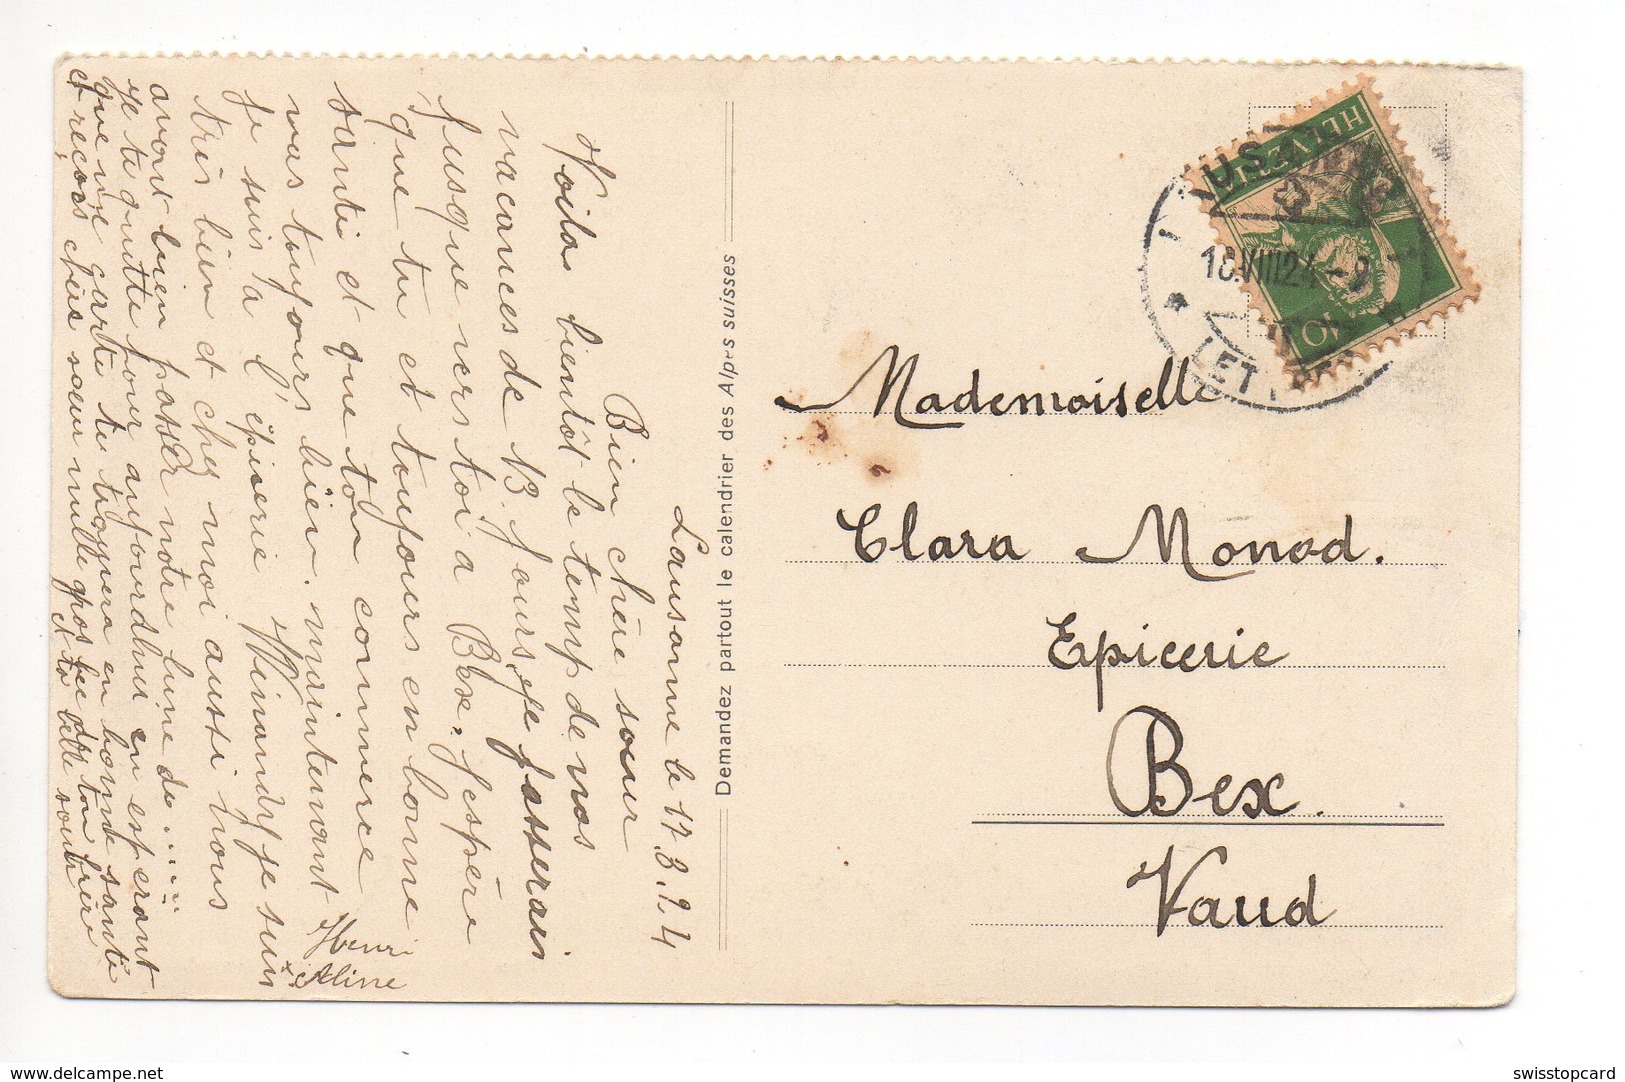 Lausanne le 17.8.24
Bien chère soeur
Voila bientôt le temp de nos
vacances de 13. jours je passerais
jusque vers toi a Bex. J'espère
que tu et toujours en bonne
santé et que ton commerce
vas toujours bien. maintenant
je suis a l'épicerie je suis
très bien et chez moi aussi nous
avont bien passer notre lune de......
je te quitte pour aujourdhui en esperant
que ma carte te en bonne santé
et reçois chère soeur mille gros de ton frère
et ta belle soeur
Henri
Aline
Demandez partout le calendrier des Alpes suisses
Mademoiselle
Clara Monod.
Epicerie
Bex.
Vaud
HELVETIA
10
LAUSANNE
18.VIII24
LETTRES
www.delcampe.net
swisstopcard